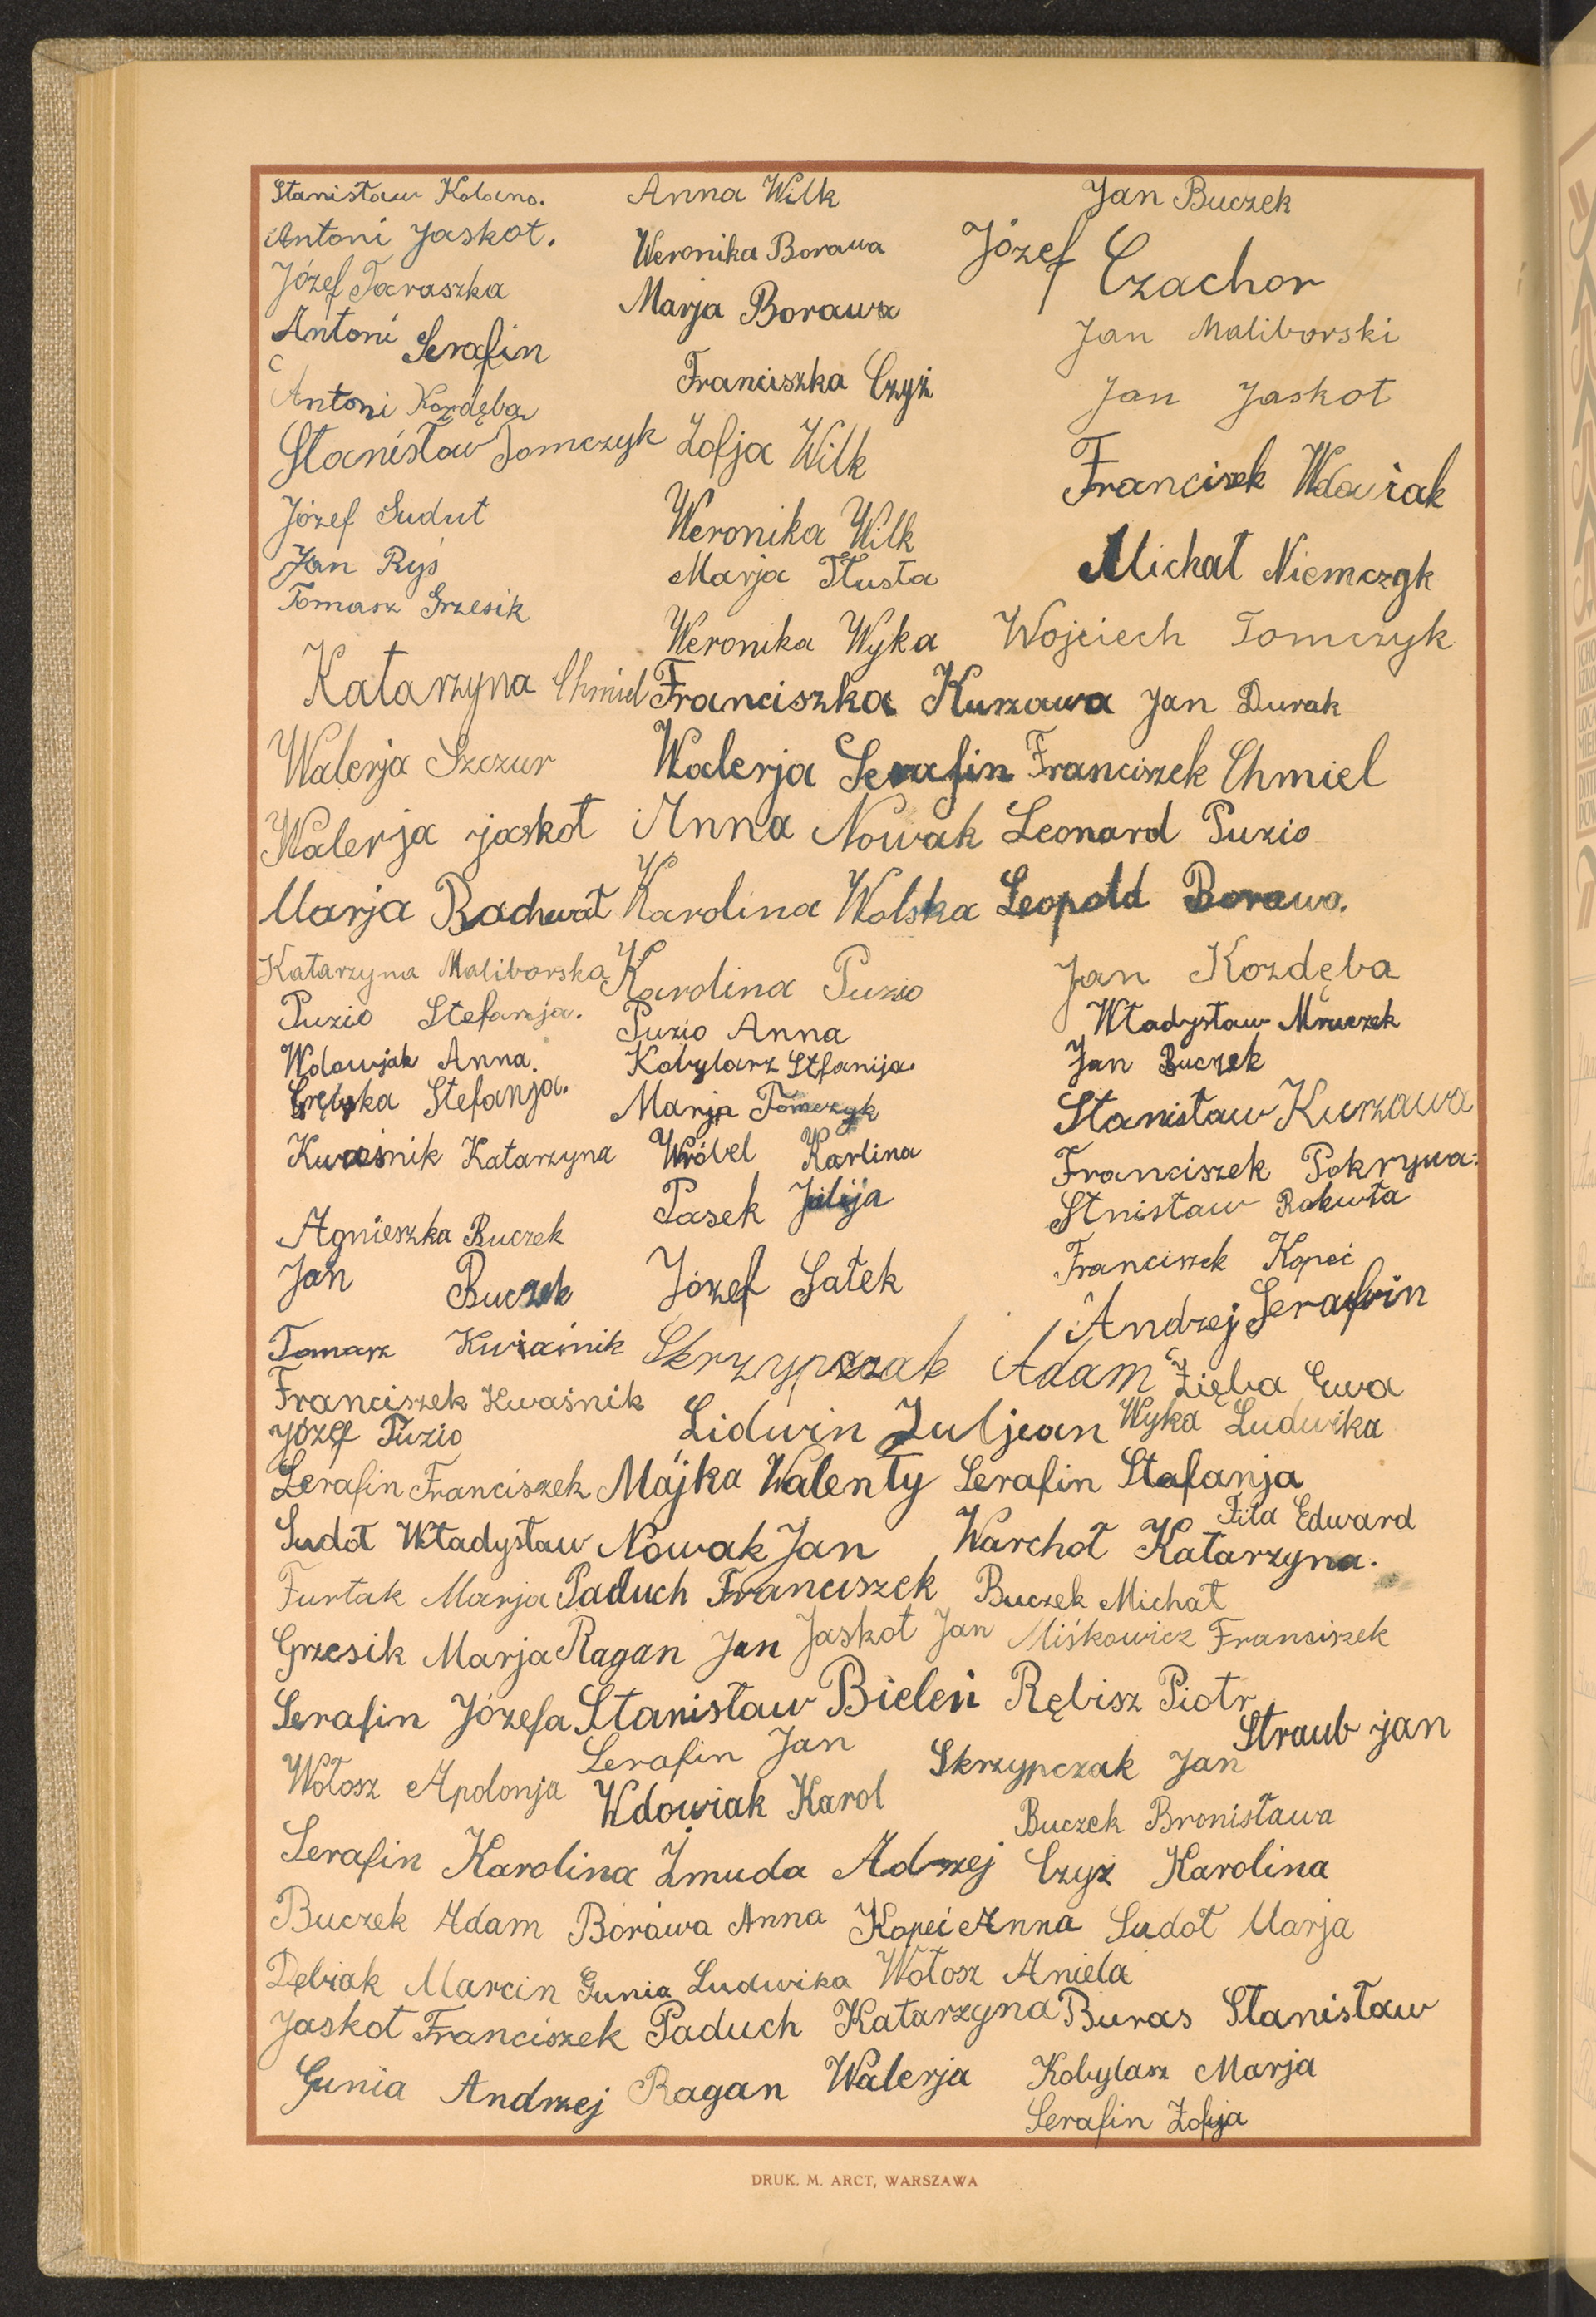 Stanisław Kolano. Anna Wilk Jan Buczek
Antoni Jaskot. Weronika Borawa Józef Czachor
Józef Taraszka Marja Borawa Jan Maliborski
Antoni Serafin Franciszka Czyż Jan Jaskot
Antoni Kozdęba
Stanisław Tomczyk Zofja Wilk Franciszek
Józef Suduł Weronika Wilk Michał Niemczyk
Jan Ryś Marja Tłusta
Tomasz Grzesik Weronika Wyka Wojciech Tomczyk
Katarzyna Chmiel Franciszka Kurzawa Jan Durak
Walerja Szczur Walerja Serafin Franciszek Chmiel
Walerja jaskot Anna Nowak Leonard Puzio
Marja Bachwat Karolina Wolska Leopold Borawa.
Katarzyna Maliborska Karolina Puzio Jan Kozdęba
Puzio Stefanja. Puzio Anna Władysław Mruczek
Wdowjak Anna. Kobylarz Stfanija. Jan Buczek
Stefanja. Marja Tomczyk Stanisław Kurzawa
Kwaśnik Katarzyna Wróbel Karlina Franciszek Pokrywa:
Pasek Julija Stnisław Rakuta
Agnieszka Buczek Franciszek Kopeć
Jan Buczek Józef Sałek Andrzej Serafin
Tomasz Kwiaśnik Skrzypczak Adam Zięba Ewa
Franciszek Kwaśnik Lidwin Juljan Wyka Ludwika
Józef Puzio
Serafin Franciszek Majka Walenty Serafin Stafanja
Fila Edward
Sudoł Władysław Nowak Jan Warchoł Katarzyna.
Furtak Marja Paduch Franciszek Buczek Michał
Grzesik Marja Ragan Jan Jaskot Jan Miśkowicz Franciszek
Serafin Józefa Stanisław Bieleń Rębisz Piotr
Straub jan
Wołosz Apolonja Serafin Jan Skrzypczak Jan
Wdowiak Karol Buczek Bronisława
Serafin Karolina Żmuda Adrzej Czyż Karolina
Buczek Adam Borawa Anna Kopeć Anna Sudoł Marja
Dębiak Marcin Gunia Ludwika Wołosz Aniela
Jaskot Franciszek Paduch Katarzyna Buras Stanisław
Gunia Andrzej Ragan Walerja Kobylasz Marja
Serafin Zofija
DRUK. M. ARCT, WARSZAWA